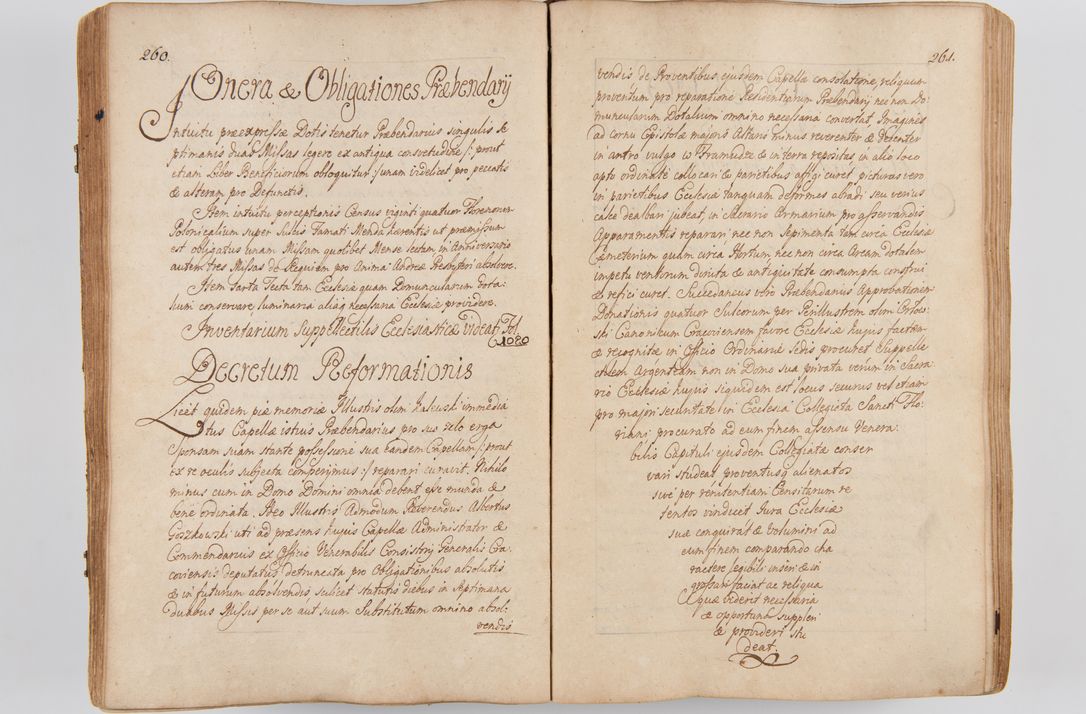 260.
Onera & Obligationes Præbendarij
Intuitu præexpressæ Dotis tenetur Præbendarius singulis Se
ptimanis duas Missas legere ex antiqua consvetudine /: prout
etiam Liber Beneficiorum obloquitur :/ unam videlicet pro peccatis
& alteram pro Defunctis.
Item intuitu perceptionis Census viginti quatuor Florenorum
Polonicalium super Villis Famati Menda hærentis ut præmissum
est obligatus unam Missam quolibet Mense lectam, in Anniversario
autem tres Missas de Requiem pro Anima Andreæ Presbyteri absolvere.
Item Sarta Tecta tam Ecclesiæ quam Domuncularum Dota:
lium conservare, luminaria aliaq necessaria Ecclesiæ providere.
Inventarium Suppellectilis Ecclesiasticæ videat Fol.
1080
Decretum Reformationis
Licet quidem piæ memoriæ Illustris olim immedia
tus Capellæ istius Præbendarius pro suo zelo erga
Spensam suam stante possessione sua eandem Capellam /: prout
ex re oculis subjecta comperimus :/ reparari curavit. Nihilo
minus cum in Domo Domini omnia debent esse munda &
bene ordinata. Ideo Illustris Admodum Reverendus Albertus
Goszkowski uti ad præsens hujus Capellæ Administrator &
Commendarius ex Officio Venerabilis Consistorij Generalis Cra
coviensis deputatus detruncata pro Obligationibus absolutis
& in futurum absolvendis scilicet statutis diebus in Septimana
duabus Missis per se aut suum Substitutum omnino absol:
vendis
261.
vendis de Proventibus ejusdem Capellæ consolatione, reliquum
proventum pro reparatione Residentiarum Præbendarij nec non Do
muncularum Dotalium omnino necessaria convertat Imagines
ad cornu Epistolæ majoris Altaris hinus reverenter & decenter
in antro vulgo w Framudze & in terra repositas in alio loco
apto ordinate collocari & parietibus affigi curet, picturas vero
in parietibus Ecclesiæ tanquam deformes abradi seu verius
calce dealbari jubeat, in Sacrario Armarium pro asservandis
Apparamentis reparari nec non Sepimenta tam circa Ecclesiæ
Cæmeterium quam circa Hortum nec non circa Aream dotalem
impetu ventorum diruta & antiquitate consumpta construi
& refici curet. Succedaneus vero Præbendarius Approbationem
Donationis quatuor Sulcorum per Perillustrem olim
ski Canonicum Cracoviensem favore Ecclesiæ hujus factam
& recognitæ in Officio Ordinariæ Sedis procuret Suppelle
ctilem Argenteam non in Domo sua privata verum in Sacra
rio Ecclesiæ hujus siquidem est locus securus vel etiam
pro majori securitate in Ecclesia Collegiata Sancti Flo:
riani procurato ad eum finem assensu Venera:
bilis Capituli ejusdem Collegiatæ conser
vari studeat proventusq alienatos
sive per renitentiam Censitarum re
tentos vindicet Jura Ecclesiæ
suæ conquirat & volumini ad
eum finem comparando cha
ractere legibili inseri & in
grossari faciat ac reliqua
quæ viderit necessaria
& opportuna suppleri
& provideri stu
deat.